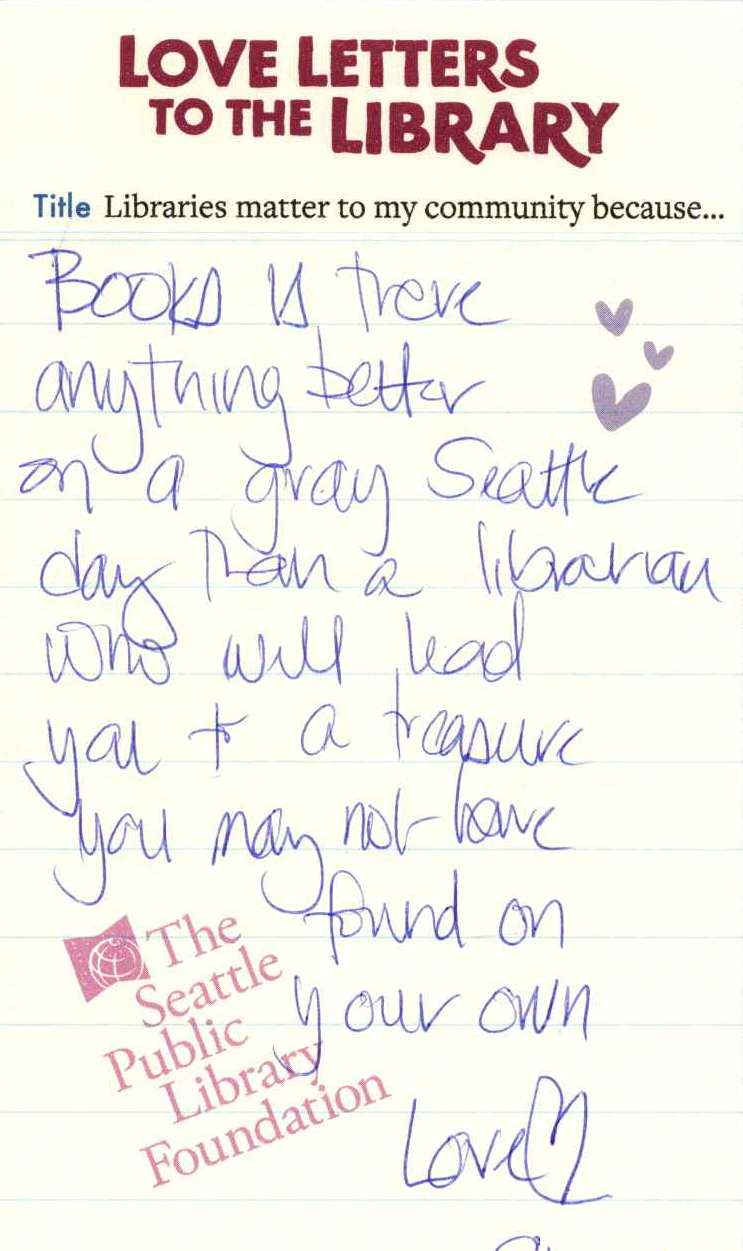 LOVE LETTERS
TO THE LIBRARY
Title Libraries matter to my community because...
Books is there
anything better
on a gray Seattle
day than a librarian
who will lead
you to a treasure
you may not have
found on
your own
The
Seattle
Public
Library
Foundation
Love